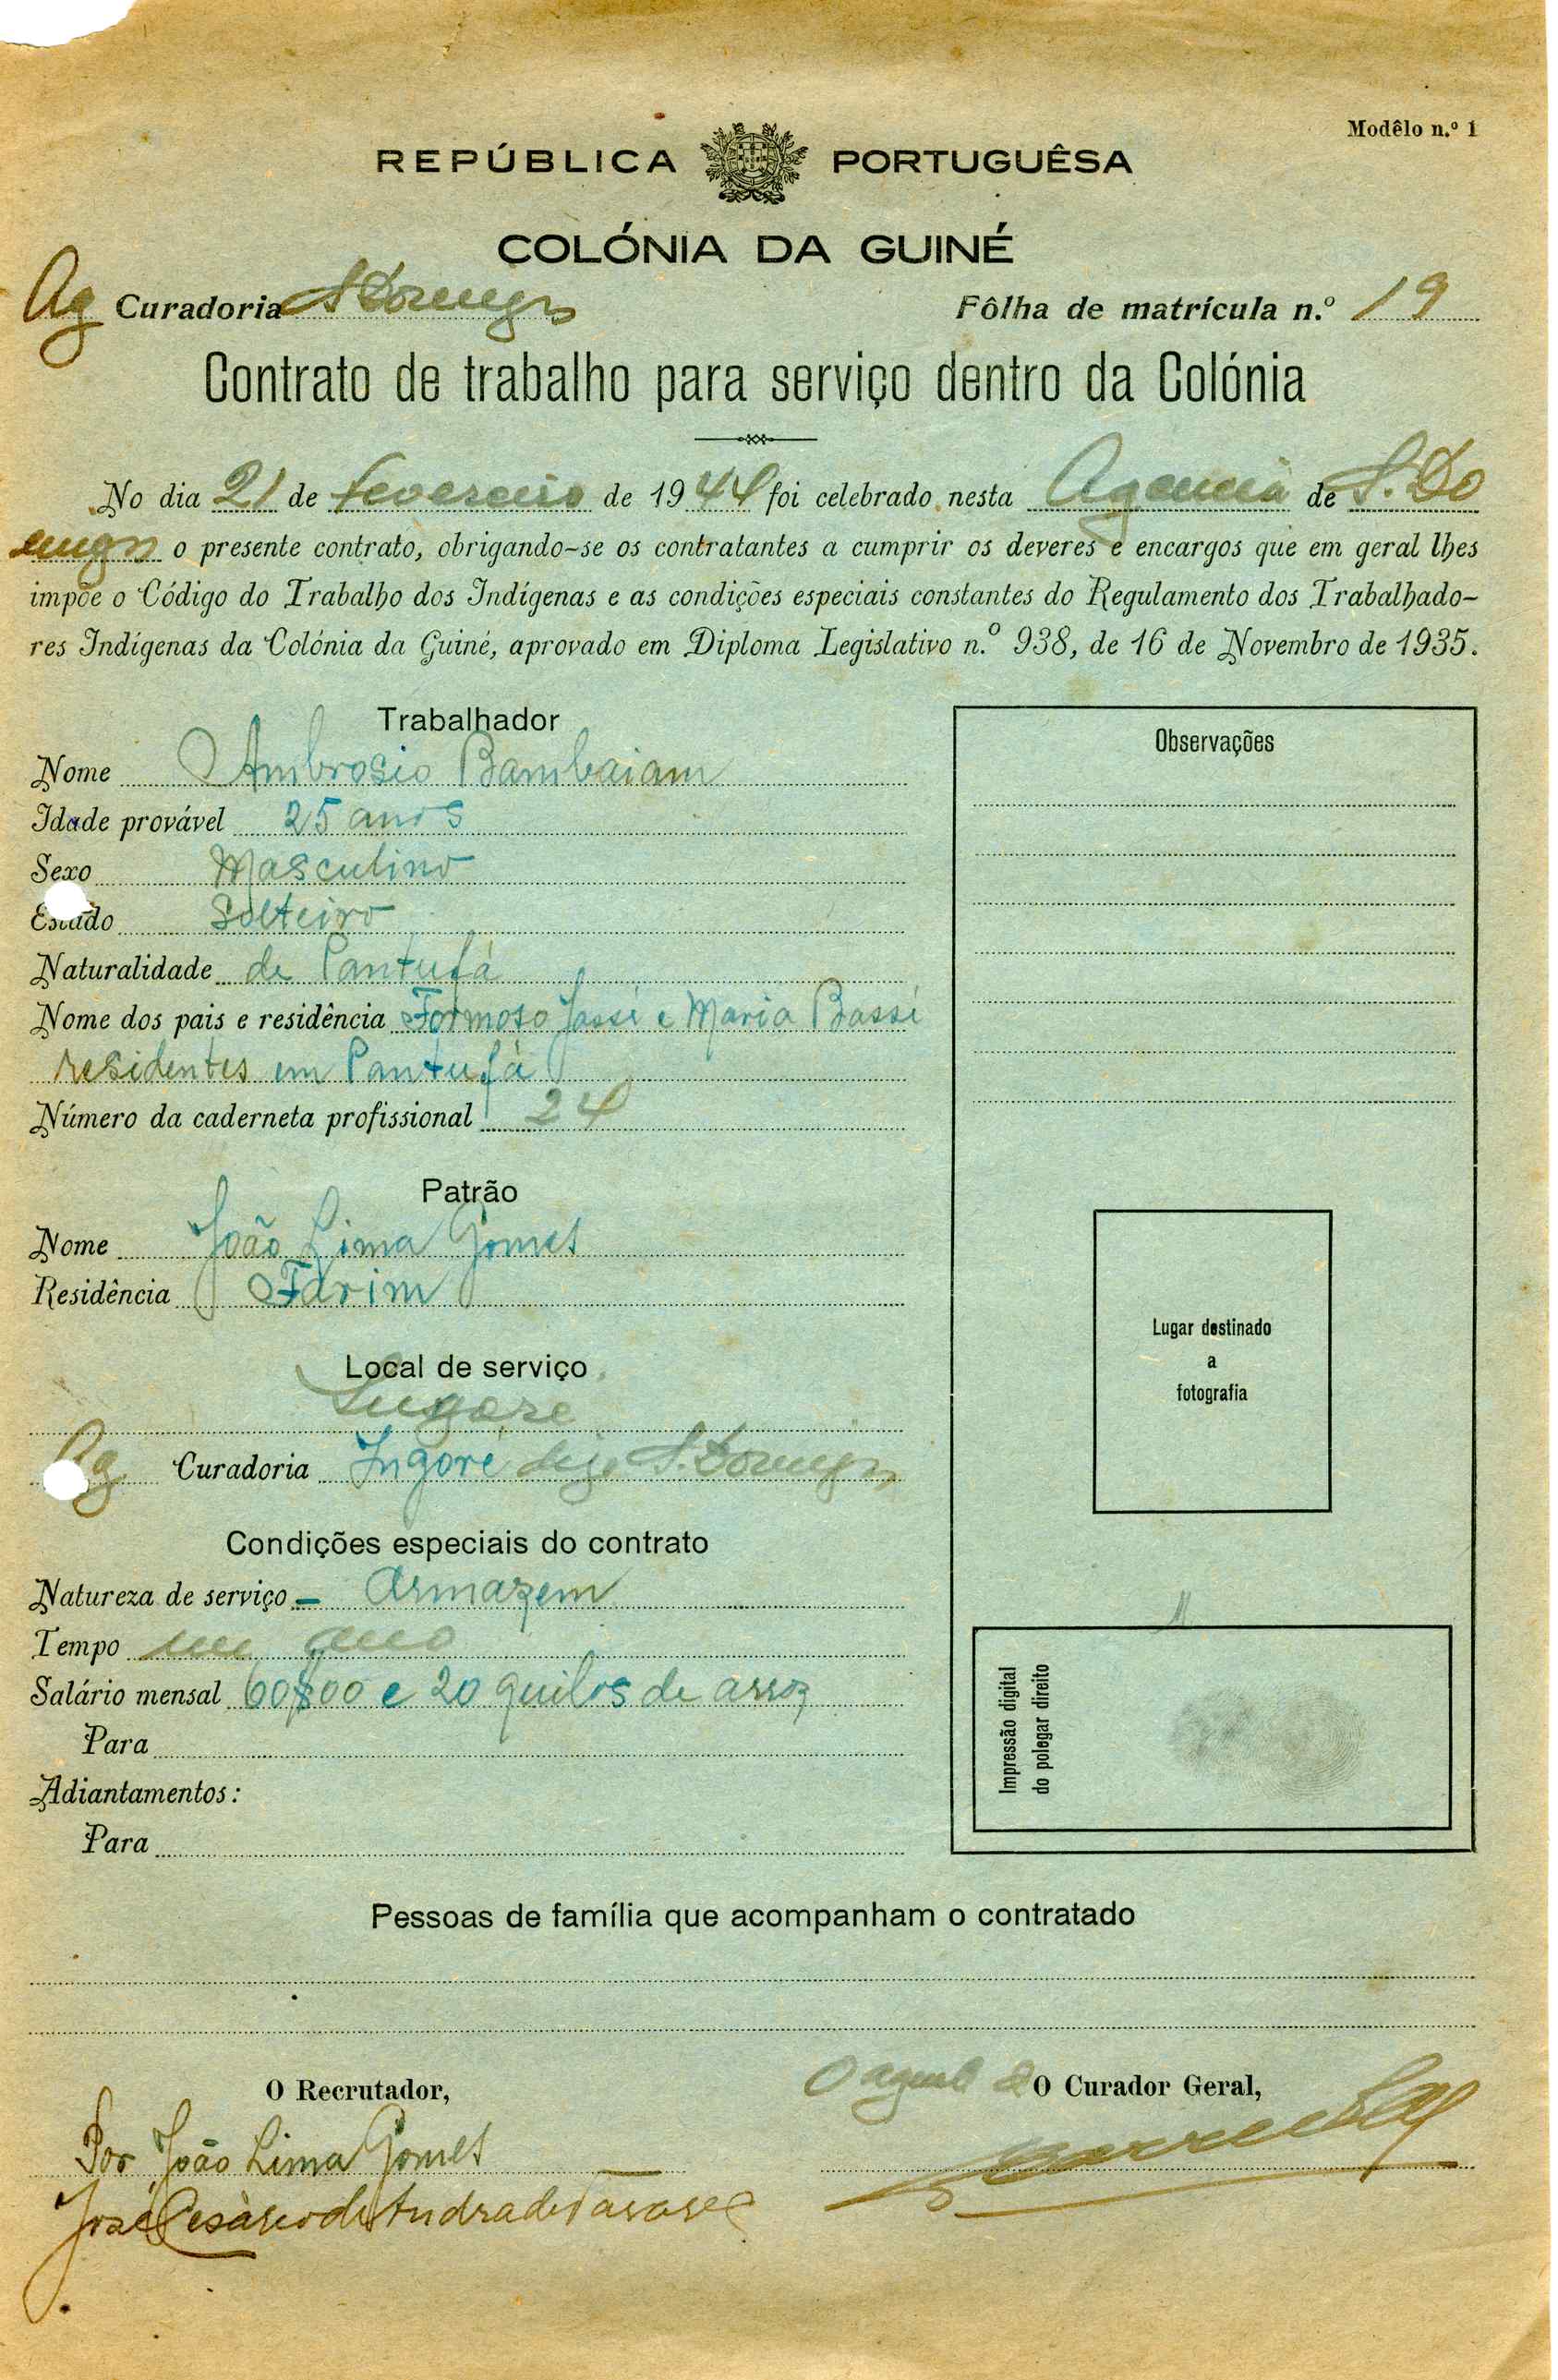 Modêlo n.º 1
REPÚBLICA PORTUGUÊSA
COLÓNIA DA GUINÉ
Ag Curadoria S Domingos Fôlha de matrícula n.º 19
Contrato de trabalho para serviço dentro da Colónia
No dia 21 de fevereiro de 1944 foi celebrado nesta Agencia de S. Do
mingos o presente contrato, obrigando-se os contratantes a cumprir os deveres e encargos que em geral lhes
impõe o Código do Trabalho dos Indígenas e as condições especiais constantes do Regulamento dos Trabalhado-
res Indígenas da Colónia da Guiné, aprovado em Diploma Legislativo n.º 938, de 16 de Novembro de 1935.
Trabalhador
Nome Ambrosio Bambaiam
Idade provável 25 anos
Sexo Masculino
Estado Solteiro
Naturalidade de Pantufá
Nome dos pais e residência Formoso Jassi e Maria Bassi
residentes em Pantufá
Número da caderneta profissional 24
Patrão
Nome João Lima Gomes
Residência Farim
Local de serviço
Ingore
Ag Curadoria Ingoré digo S. Domingos
Condições especiais do contrato
Natureza de serviço - Armazem
Tempo um ano
Salário mensal 60$00 e 20 quilos de arroz
Para
Adiantamentos:
Para
Observações
Lugar destinado
a
fotografia
Impressão digital
do polegar direito
Pessoas de família que acompanham o contratado
O Recrutador,
Por João Lima Gomes
José Cesàreo de Andrade Tavares
O agente do O Curador Geral,